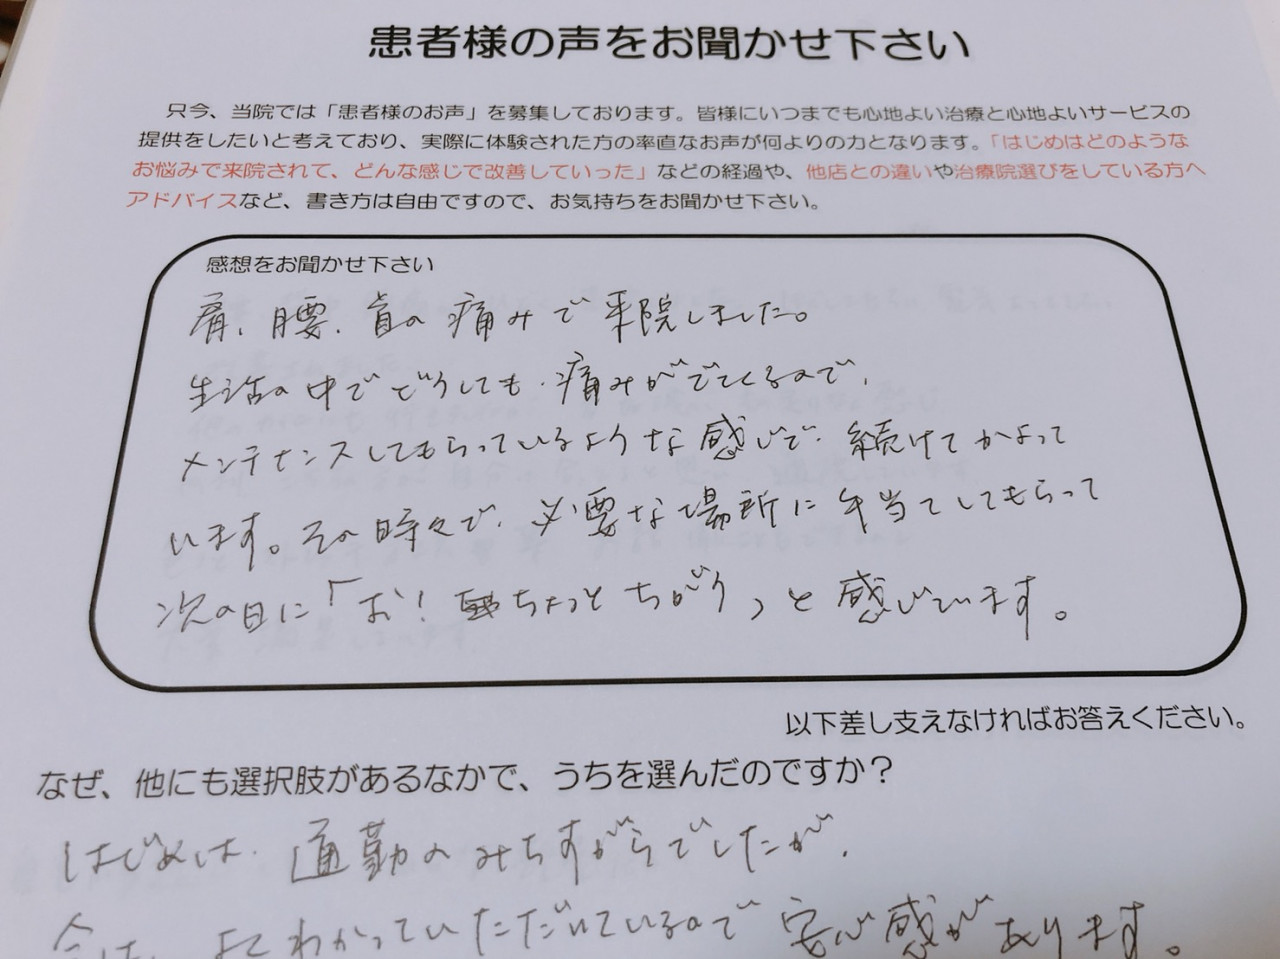 患者様の声をお聞かせ下さい
只今、当院では「患者様のお声」を募集しております。皆様にいつまでも心地よい治療と心地よいサービスの
提供をしたいと考えており、実際に体験された方の率直なお声が何よりの力となります。「はじめはどのような
お悩みで来院されて、どんな感じで改善していった」などの経過や、他店との違いや治療院選びをしている方へ
アドバイスなど、書き方は自由ですので、お気持ちをお聞かせ下さい。
感想をお聞かせ下さい
肩、腰、首の痛みで来院しました。
生活の中でどうしても、痛みがでてくるので、
メンテナンスしてもらっているような感じで、続けてかよって
います。その時々で、必要な場所に手当てしてもらって
次の日に「お!ちょっとちがう」と感じています。
以下差し支えなければお答えください。
なぜ、他にも選択肢があるなかで、うちを選んだのですか?
はじめは、通勤のみちすがらでしたが、
今は、よくわかっていただいているので安心感があります。